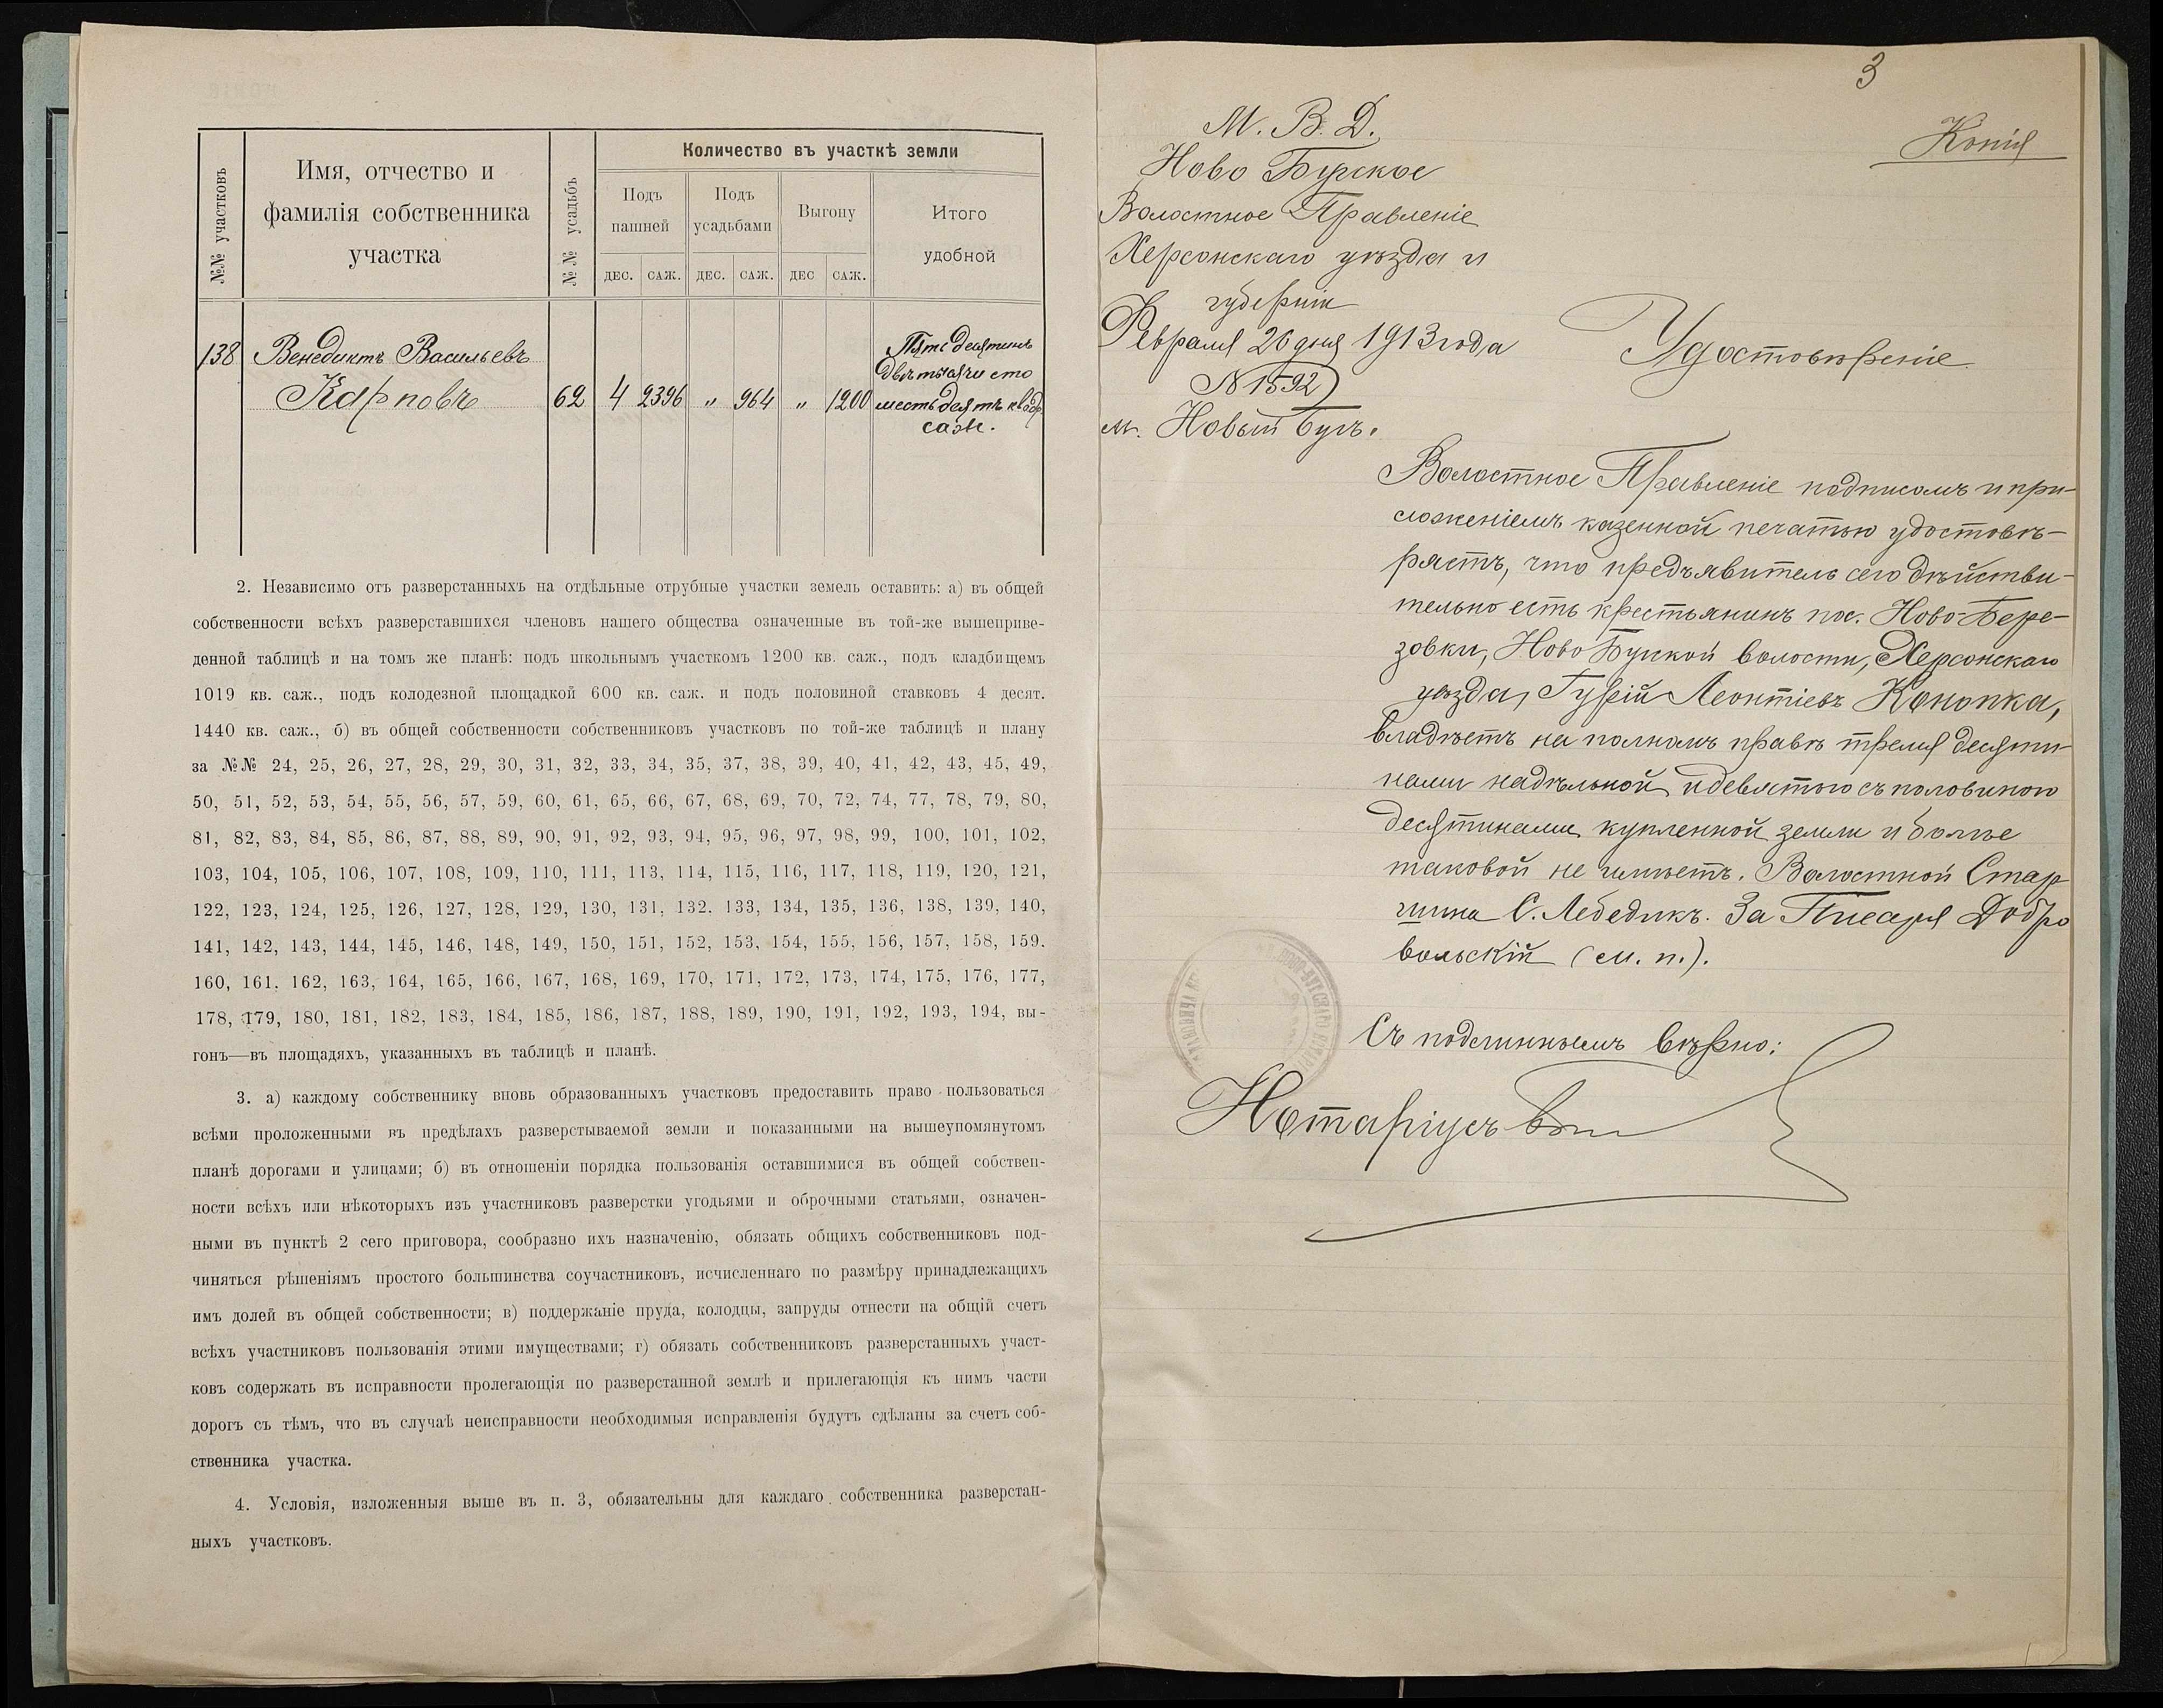 №№ участковъ
Имя, отчество и
фамилія собственника
участка
№№ усадьбъ
Количество въ участкѣ земли
Подъ
пашней
Подъ
усадьбами
Выгону
Итого
удобной
дес. саж. дес. саж. дес саж.
138 Венедиктъ Васильевъ
Карповъ 62 4 2396 „ 964 „ 1200
Пять десятинъ
двѣ тысячи сто
шестьдесятъ квадр
саж.
2. Независимо отъ разверстанныхъ на отдѣльные отрубные участки земель оставить: а) въ общей
собственности всѣхъ разверставшихся членовъ нашего общества означенные въ той-же вышеприве-
денной таблицѣ и на томъ же планѣ: подъ школьнымъ участкомъ 1200 кв. саж., подъ кладбищемъ
1019 кв. саж., подъ колодезной площадкой 600 кв. саж. и подъ половиной ставковъ 4 десят.
1440 кв. саж., б) въ общей собственности собственниковъ участковъ по той-же таблицѣ и плану
за №№ 24, 25, 26, 27, 28, 29, 30, 31, 32, 33, 34, 35, 37, 38, 39, 40, 41, 42, 43, 45, 49,
50, 51, 52, 53, 54, 55, 56, 57, 59, 60, 61, 65, 66, 67, 68, 69, 70, 72, 74, 77, 78, 79, 80,
81, 82, 83, 84, 85, 86, 87, 88, 89, 90, 91, 92, 93, 94, 95, 96, 97, 98, 99, 100, 101, 102,
103, 104, 105, 106, 107, 108, 109, 110, 111, 113, 114, 115, 116, 117, 118, 119, 120, 121,
122, 123, 124, 125, 126, 127, 128, 129, 130, 131, 132. 133, 134, 135, 136, 138, 139, 140,
141, 142, 143, 144, 145, 146, 148, 149, 150, 151, 152, 153, 154, 155, 156, 157, 158, 159.
160, 161. 162, 163, 164, 165, 166, 167, 168, 169, 170, 171, 172, 173, 174, 175, 176, 177,
178, 179, 180, 181, 182, 183, 184, 185, 186, 187, 188, 189, 190, 191, 192, 193, 194, вы-
гонъ—въ площадяхъ, указанныхъ въ таблицѣ и планѣ.
3. а) каждому собственнику вновь образованныхъ участковъ предоставить право пользоваться
всѣми проложенными въ предѣлахъ разверстываемой земли и показанными на вышеупомянутомъ
планѣ дорогами и улицами; б) въ отношеніи порядка пользованія оставшимися въ общей собствен-
ности всѣхъ или нѣкоторыхъ изъ участниковъ разверстки угодьями и оброчными статьями, означен-
ными въ пунктѣ 2 сего приговора, сообразно ихъ назначенію, обязать общихъ собственниковъ под-
чиняться рѣшеніямъ простого большинства соучастниковъ, исчисленнаго по размѣру принадлежащихъ
имъ долей въ общей собственности; в) поддержаніе пруда, колодцы, запруды отнести на общій счетъ
всѣхъ участниковъ пользованія этими имуществами; г) обязать собственниковъ разверстанныхъ участ-
ковъ содержать въ исправности пролегающія по разверстанной землѣ и прилегающія къ нимъ части
дорогъ съ тѣмъ, что въ случаѣ неисправности необходимыя исправленія будутъ сдѣланы за счетъ соб-
ственника участка.
4. Условія, изложенныя выше въ п. 3, обязательны для каждаго собственника разверстан-
ныхъ участковъ.
3
Копія
М. В. Д.
Ново Бугское
Волостное Правленіе
Херсонскаго уѣзда и
губерніи
Февраля 26 дня 1913 года
№ 1592
м. Новый Бугъ.
Удостовѣреніе
Волостное Правленіе подписомъ и при-
сложеніемъ казенной печатью удостовѣ-
ряетъ, что предъявитель сего дѣйстви-
тельно есть крестьянинъ пос. Ново-Бере-
зовки, Ново Бугской волости, Херсонскаго
уѣзда, Гурій Леонтіевъ Конопка,
владѣетъ на полномъ правѣ тремя десяти-
нами надѣльной и девятью съ половиною
десятинами купленной земли и болѣе
таковой не имѣетъ. Волостной Стар
шина С. Лебедикъ. За Писаря Добро
вольскій (м. п.).
Съ подлиннымъ вѣрно:
Нотаріусъ